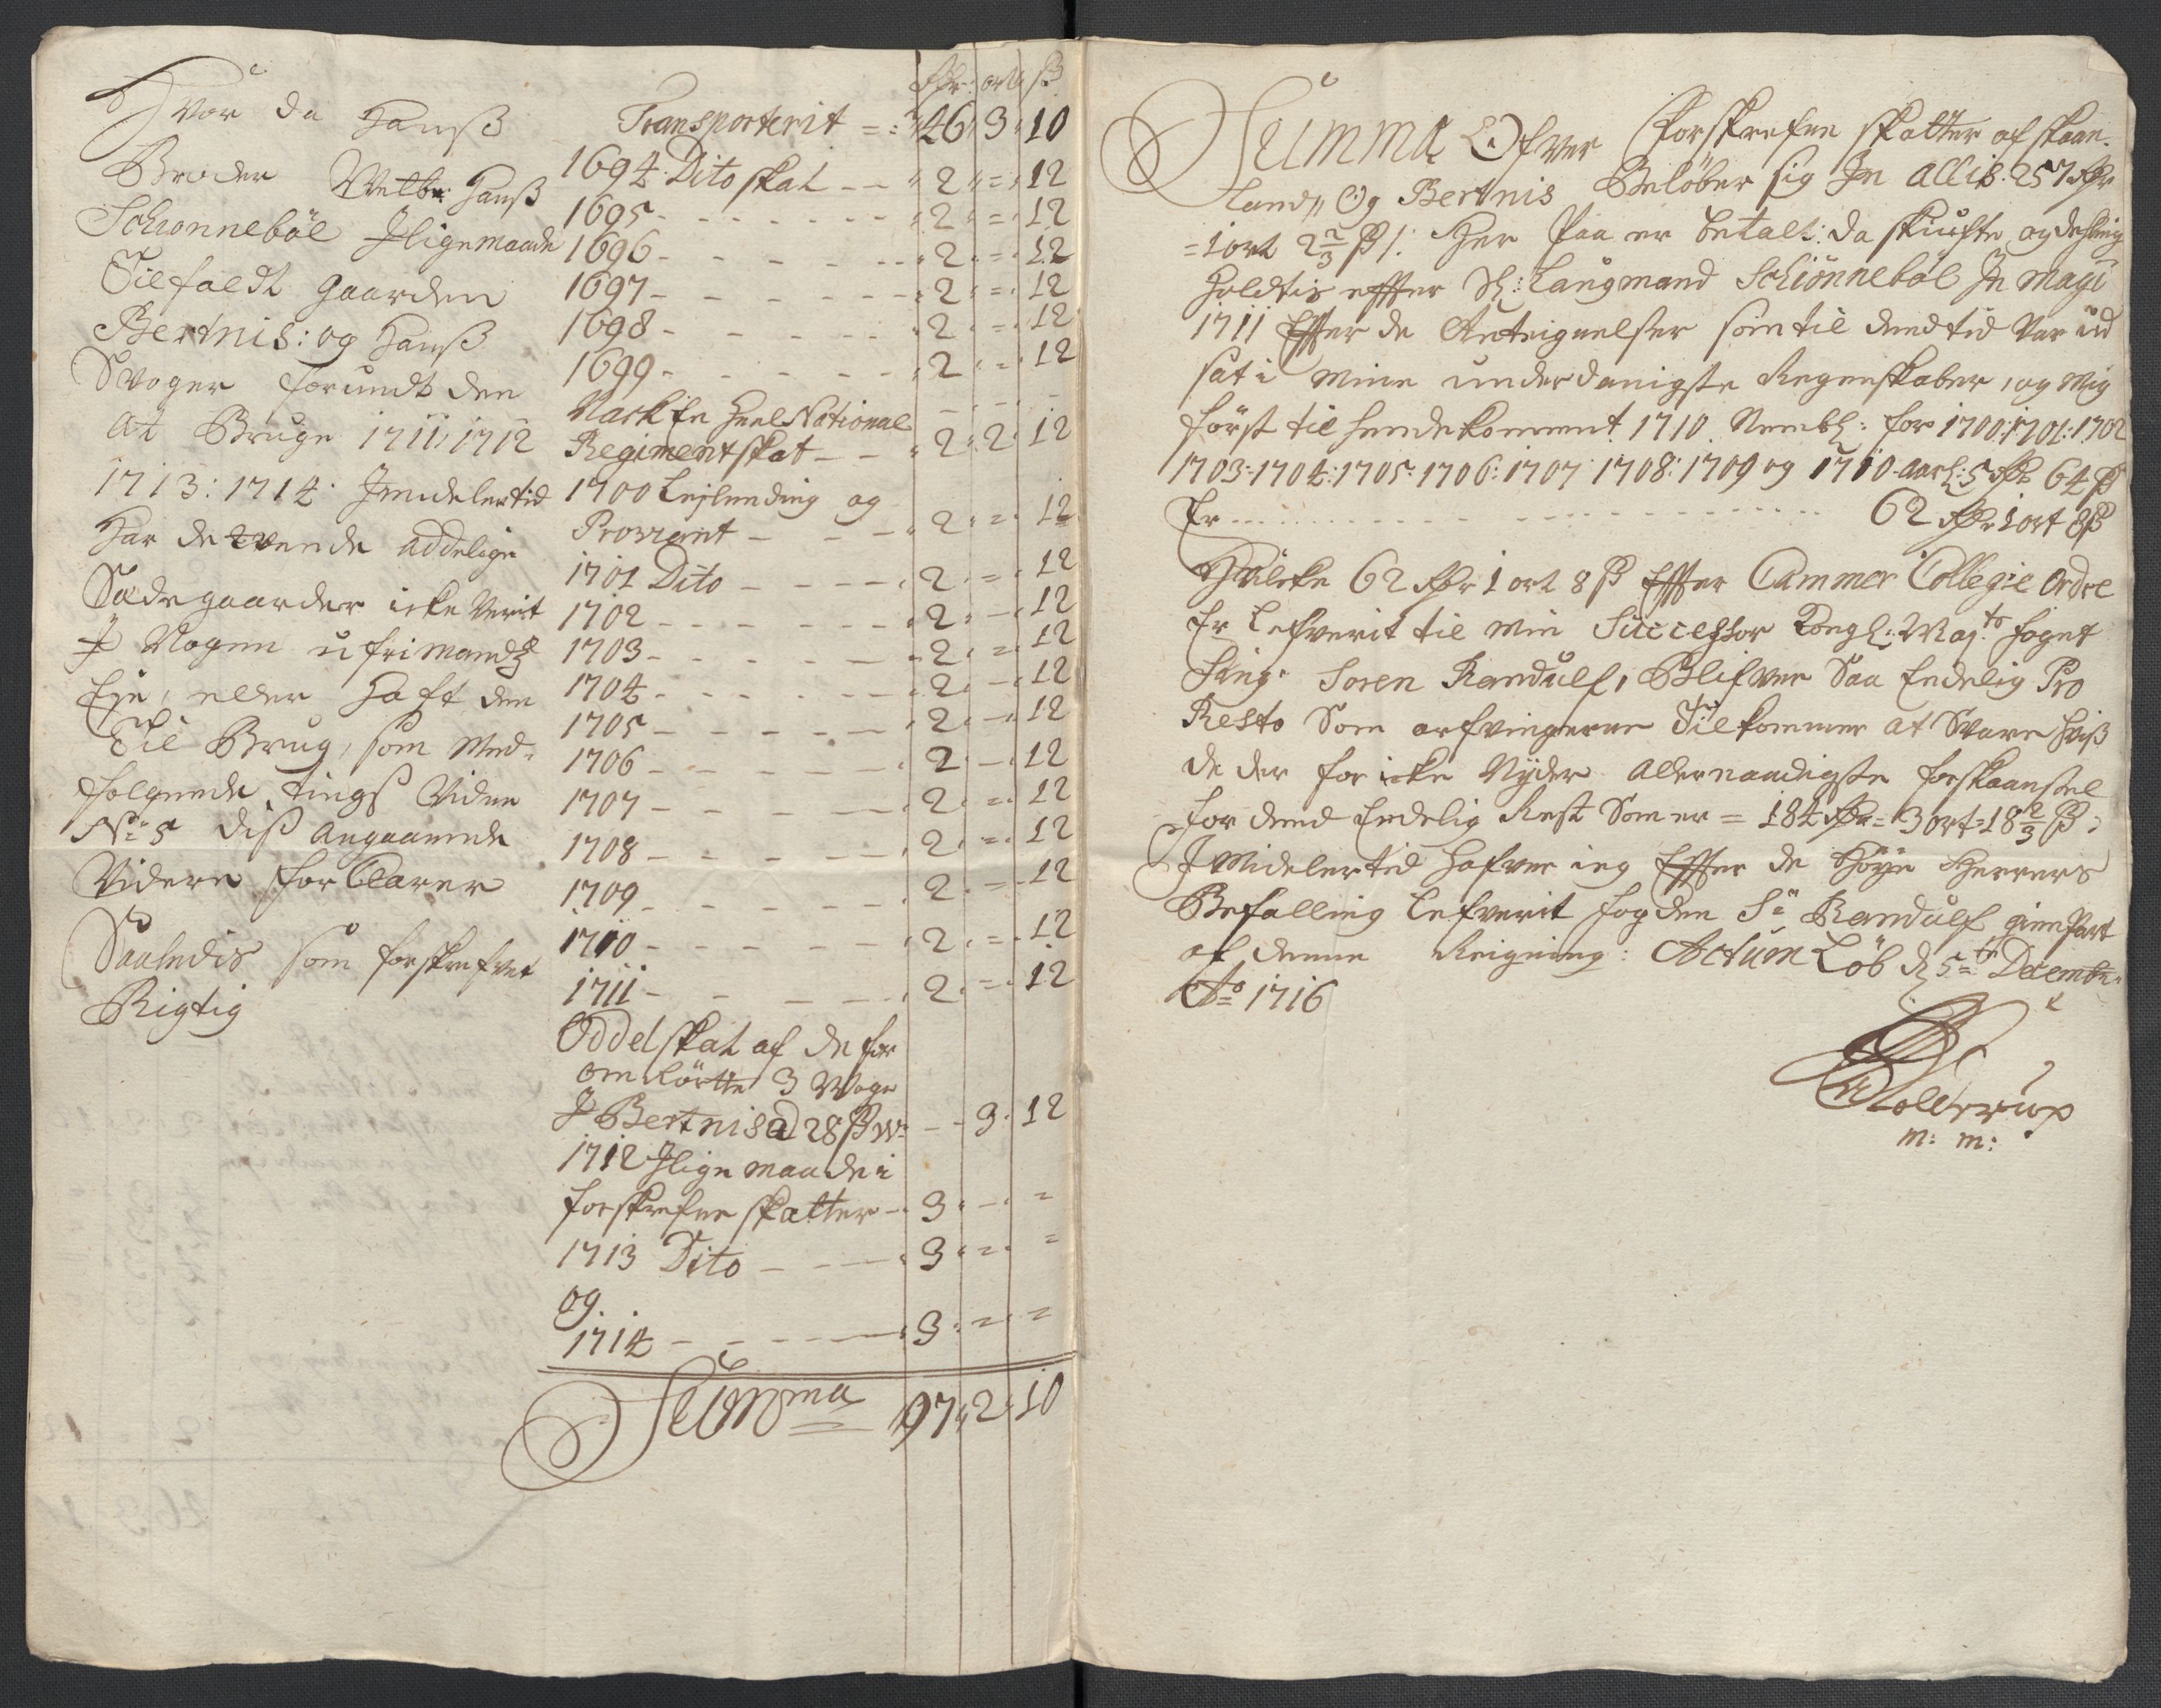 Hvor da Hanß
Broder Welb: Hanß
Schonnebøl Jligemaade
Tilfaldt Gaarden
Bertnis: og Hanß
Svoger forundt den
at Bruge 1711, 1712
1713: 1714. Jmidlertid
Har de tvende addelige
Sædegaarder icke Verit
J Nogen ufrimands
Eje, eller Haft den
Til Brug, som Med-
følgende Tings Vidne
No 5 diß Angaaende
Videre forklarer
Saaledis som forskrefvet
Rigtig
Rdr: ort ß
Transporterit = 46 3 10
1694 Dito skat - - 2 = 12
1695 - - - 2 = 12
1696 - - - 2 = 12
1697 - - - 2 = 12
1698 - - - 2 = 12
1699 - - - 2 = 12
Nock En Heel National
Regiment skat - - 2 2 12
1700 Leilending og
Proviant - - - 2 = 12
1701 Dito - - - 2 = 12
1702 - - - 2 - 12
1703 - - - 2 = 12
1704 - - - 2 - 12
1705 - - - 2 - 12
1706 - - - 2 - 12
1707 - - - 2 = 12
1708 - - - 2 = 12
1709 - - - 2 = 12
1710 - - - 2 = 12
1711 - - - 2 = 12
Oddel skat af de for
om rørtte 3 Woge
J Bertnis ad 28 ß W: - - 3 12
1712 Jlige maade i
forskrefne skatter - 3 - =
1713 Dito - - - 3 = =
og
1714 - - - 3 = =
Summa 97 2 10
Summa Ofver Forskrefne skatter af skaan-
land, Og Bertnis Beløber sig Jn allis 257 Rdr
= 1 ort 2 2/3 ß /: Her Paa er betalt: da skiufte og dehling
Holdtis effter Sl: Laugmand Schiønnebøl Jn Maji
1711 Effter de Anteignelser som til dend tid Var ud
sat i Mine underdanigste Regenskaber, og Mig
først til hende komment 1710. Nembl: for 1700: 1701: 1702
1703: 1704: 1705: 1706: 1707 1708: 1709 og 1710 aarl: 5 Rdr 64 ß
Er - - - 62 Rdr 1 ort 8 ß
Hvilcke 62 Rdr 1 ort 8 ß Effter Cammer Collegie Ordre
Er Lefverit til Min Successor Kongl: Mayts foget
Sing: Soren Randulf, Blifver Saa Endelig Pro
Resto Som arfvingerne Tilkommer at Svare Hviß
de der for icke Nyder Allernaadigste forskaansel
for dend Endelig Rest Som er = 184 Rdr = 3 ort = 18 2/3 ß;
Jmidlertid Hafver ieg Effter de Høye Herrers
Befalling Lefverit fogden Sr Randulf gienpart
af denne Reigning: Actum Løb d 5te Decembr
Ao 1716
Tollerup
m: m: